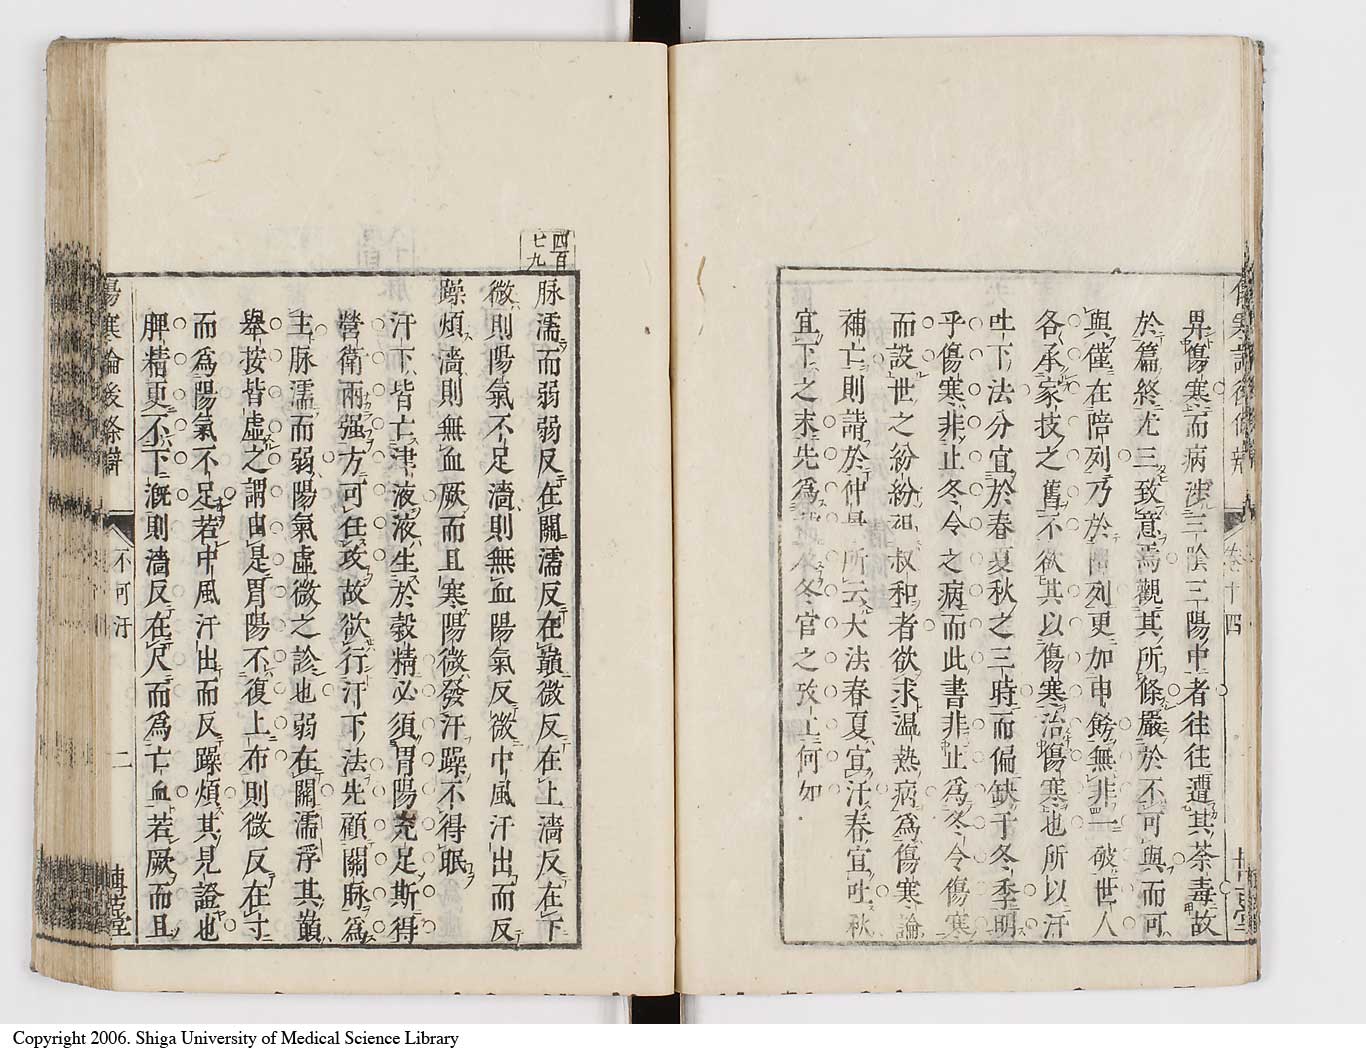 畀傷寒而病涉三陰三陽中者往往遭其荼毒故
於篇終尤三致意焉觀其所條嚴於不可與而可
與僅在陪列乃於陪列更加申飭無非一破世人
各承家技之舊不欲其以傷寒治傷寒也所以汗
吐下法分宜於春夏秋之三時而偏缺于冬季明
乎傷寒非止冬令之病而此書非止爲冬令傷寒
而設世之紛紛祖叔和者欲求温熱病爲傷寒論
補亡則請於仲景所云大法春夏宜汗春宜吐秋
宜下之末先爲冬官之攷工何如
卷十四
四百七九
脉濡而弱弱反在關濡反在巔微反在上濇反在下
微則陽氣不足濇則無血陽氣反微中風汗出而反
躁煩濇則無血厥而且寒陽微發汗躁不得眠
汗下皆亡津液液生於穀精必須胃陽充足斯得
營衛兩强方可任攻故欲行汗下法先顧關脉爲
主脉濡而弱陽氣虛微之診也弱在關濡浮其巔
舉按皆虛之謂由是胃陽不復上布則微反在寸
而爲陽氣不足若中風汗出而反躁煩其見證也
脾精更不下溉則濇反在尺而爲亡血若厥而且
傷寒論後條辯
不可汗
二
博古堂
Copyright 2006. Shiga University of Medical Science Library